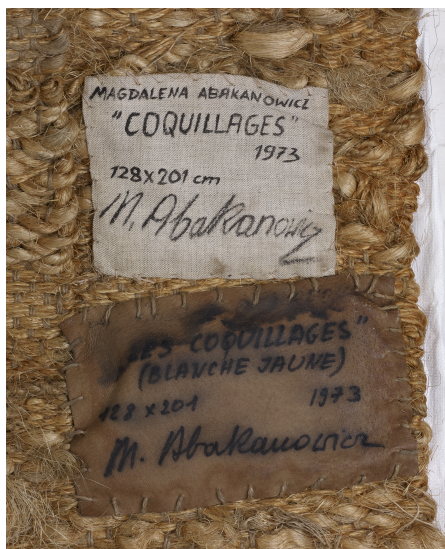 MAGDALENA ABAKANOWICZ
"COQUILLAGES"
1973
128x201 cm
M. Abakanowicz
"LES COQUILLAGES"
(BLANCHE JAUNE)
128 x 201 1973
M. Abakanowicz